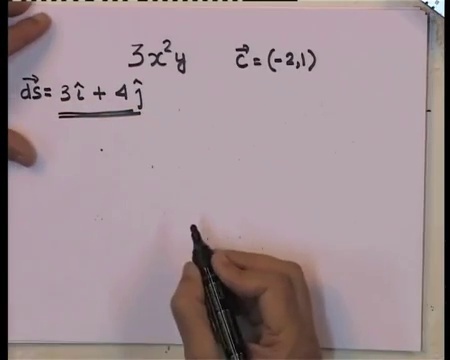 3x²y c⃗ = (-2,1)
d⃗s = 3î + 4ĵ